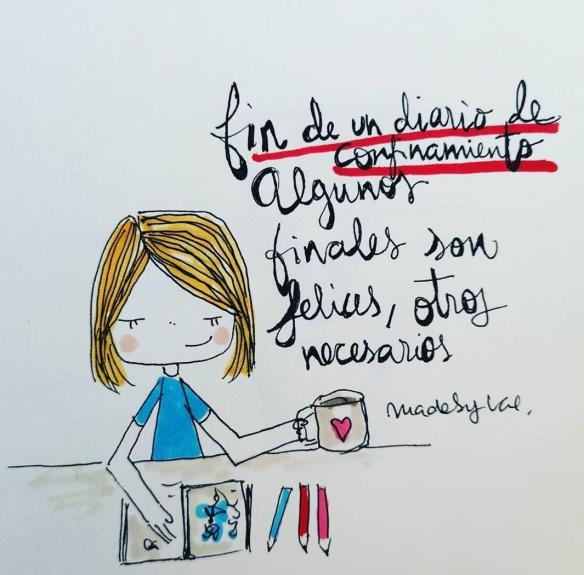 fin de un diario de
confinamiento
Algunos
finales son
felices, otros
necesarios